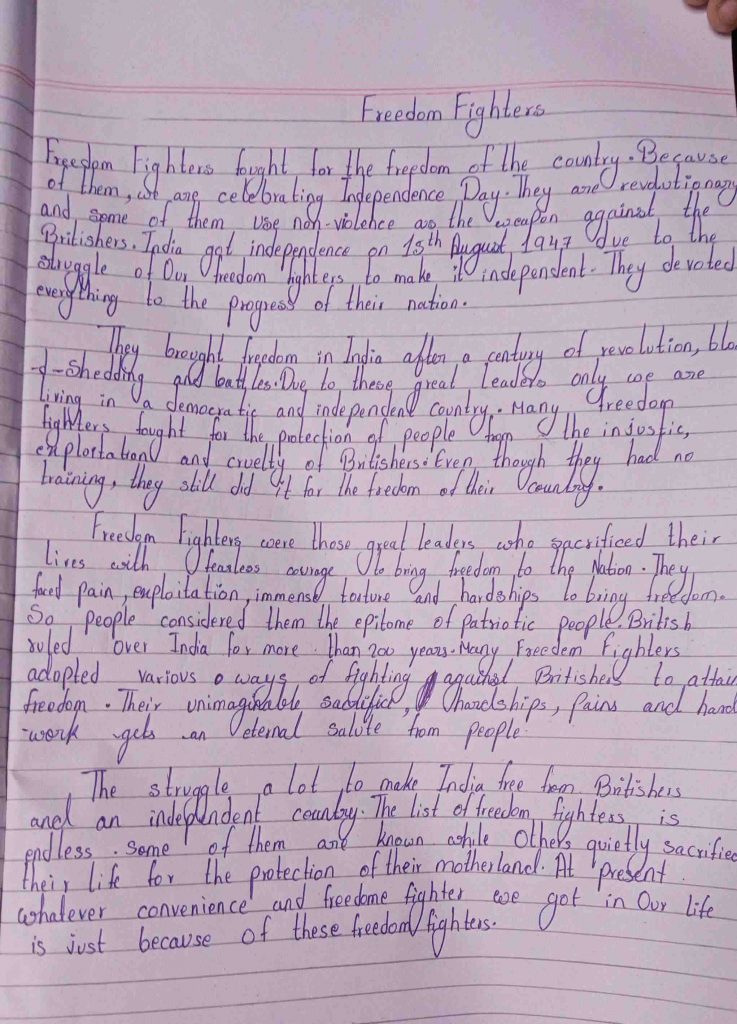 Freedom Fighters
Freedom Fighters fought for the freedom of the country. Because
of them, we are celebrating Independence Day. They are revolutionary
and some of them use non-violence as the weapon against the
Britishers. India got independence on 15th August 1947 due to the
struggle of Our freedom fighters to make it independent. They devoted
everything to the progress of their nation.
They brought freedom in India after a century of revolution, bloo
-d-Shedding and battles. Due to these great leaders only we are
living in a democratic and independent country. Many freedom
fighters fought for the protection of people from the injustic,
exploitation and cruelty of Britishers. Even though they had no
training, they still did it for the freedom of their country.
Freedom Fighters were those great leaders who sacrificed their
lives with fearless courage to bring freedom to the Nation. They
faced pain, exploitation, immense torture and hardships to bring freedom.
So people considered them the epitome of patriotic people. British
ruled over India for more than 200 years. Many Freedom Fighters
adopted various ways of fighting against Britishers to attain
freedom. Their unimaginable sacrifice, hardships, pains and hard
-work gets an eternal salute from people.
The struggle a lot to make India free from Britishers
and an independent country. The list of freedom fighters is
endless. Some of them are known while Others quietly sacrificed
their life for the protection of their motherland. At present
whatever convenience and freedome fighter we got in Our life
is just because of these freedom fighters.